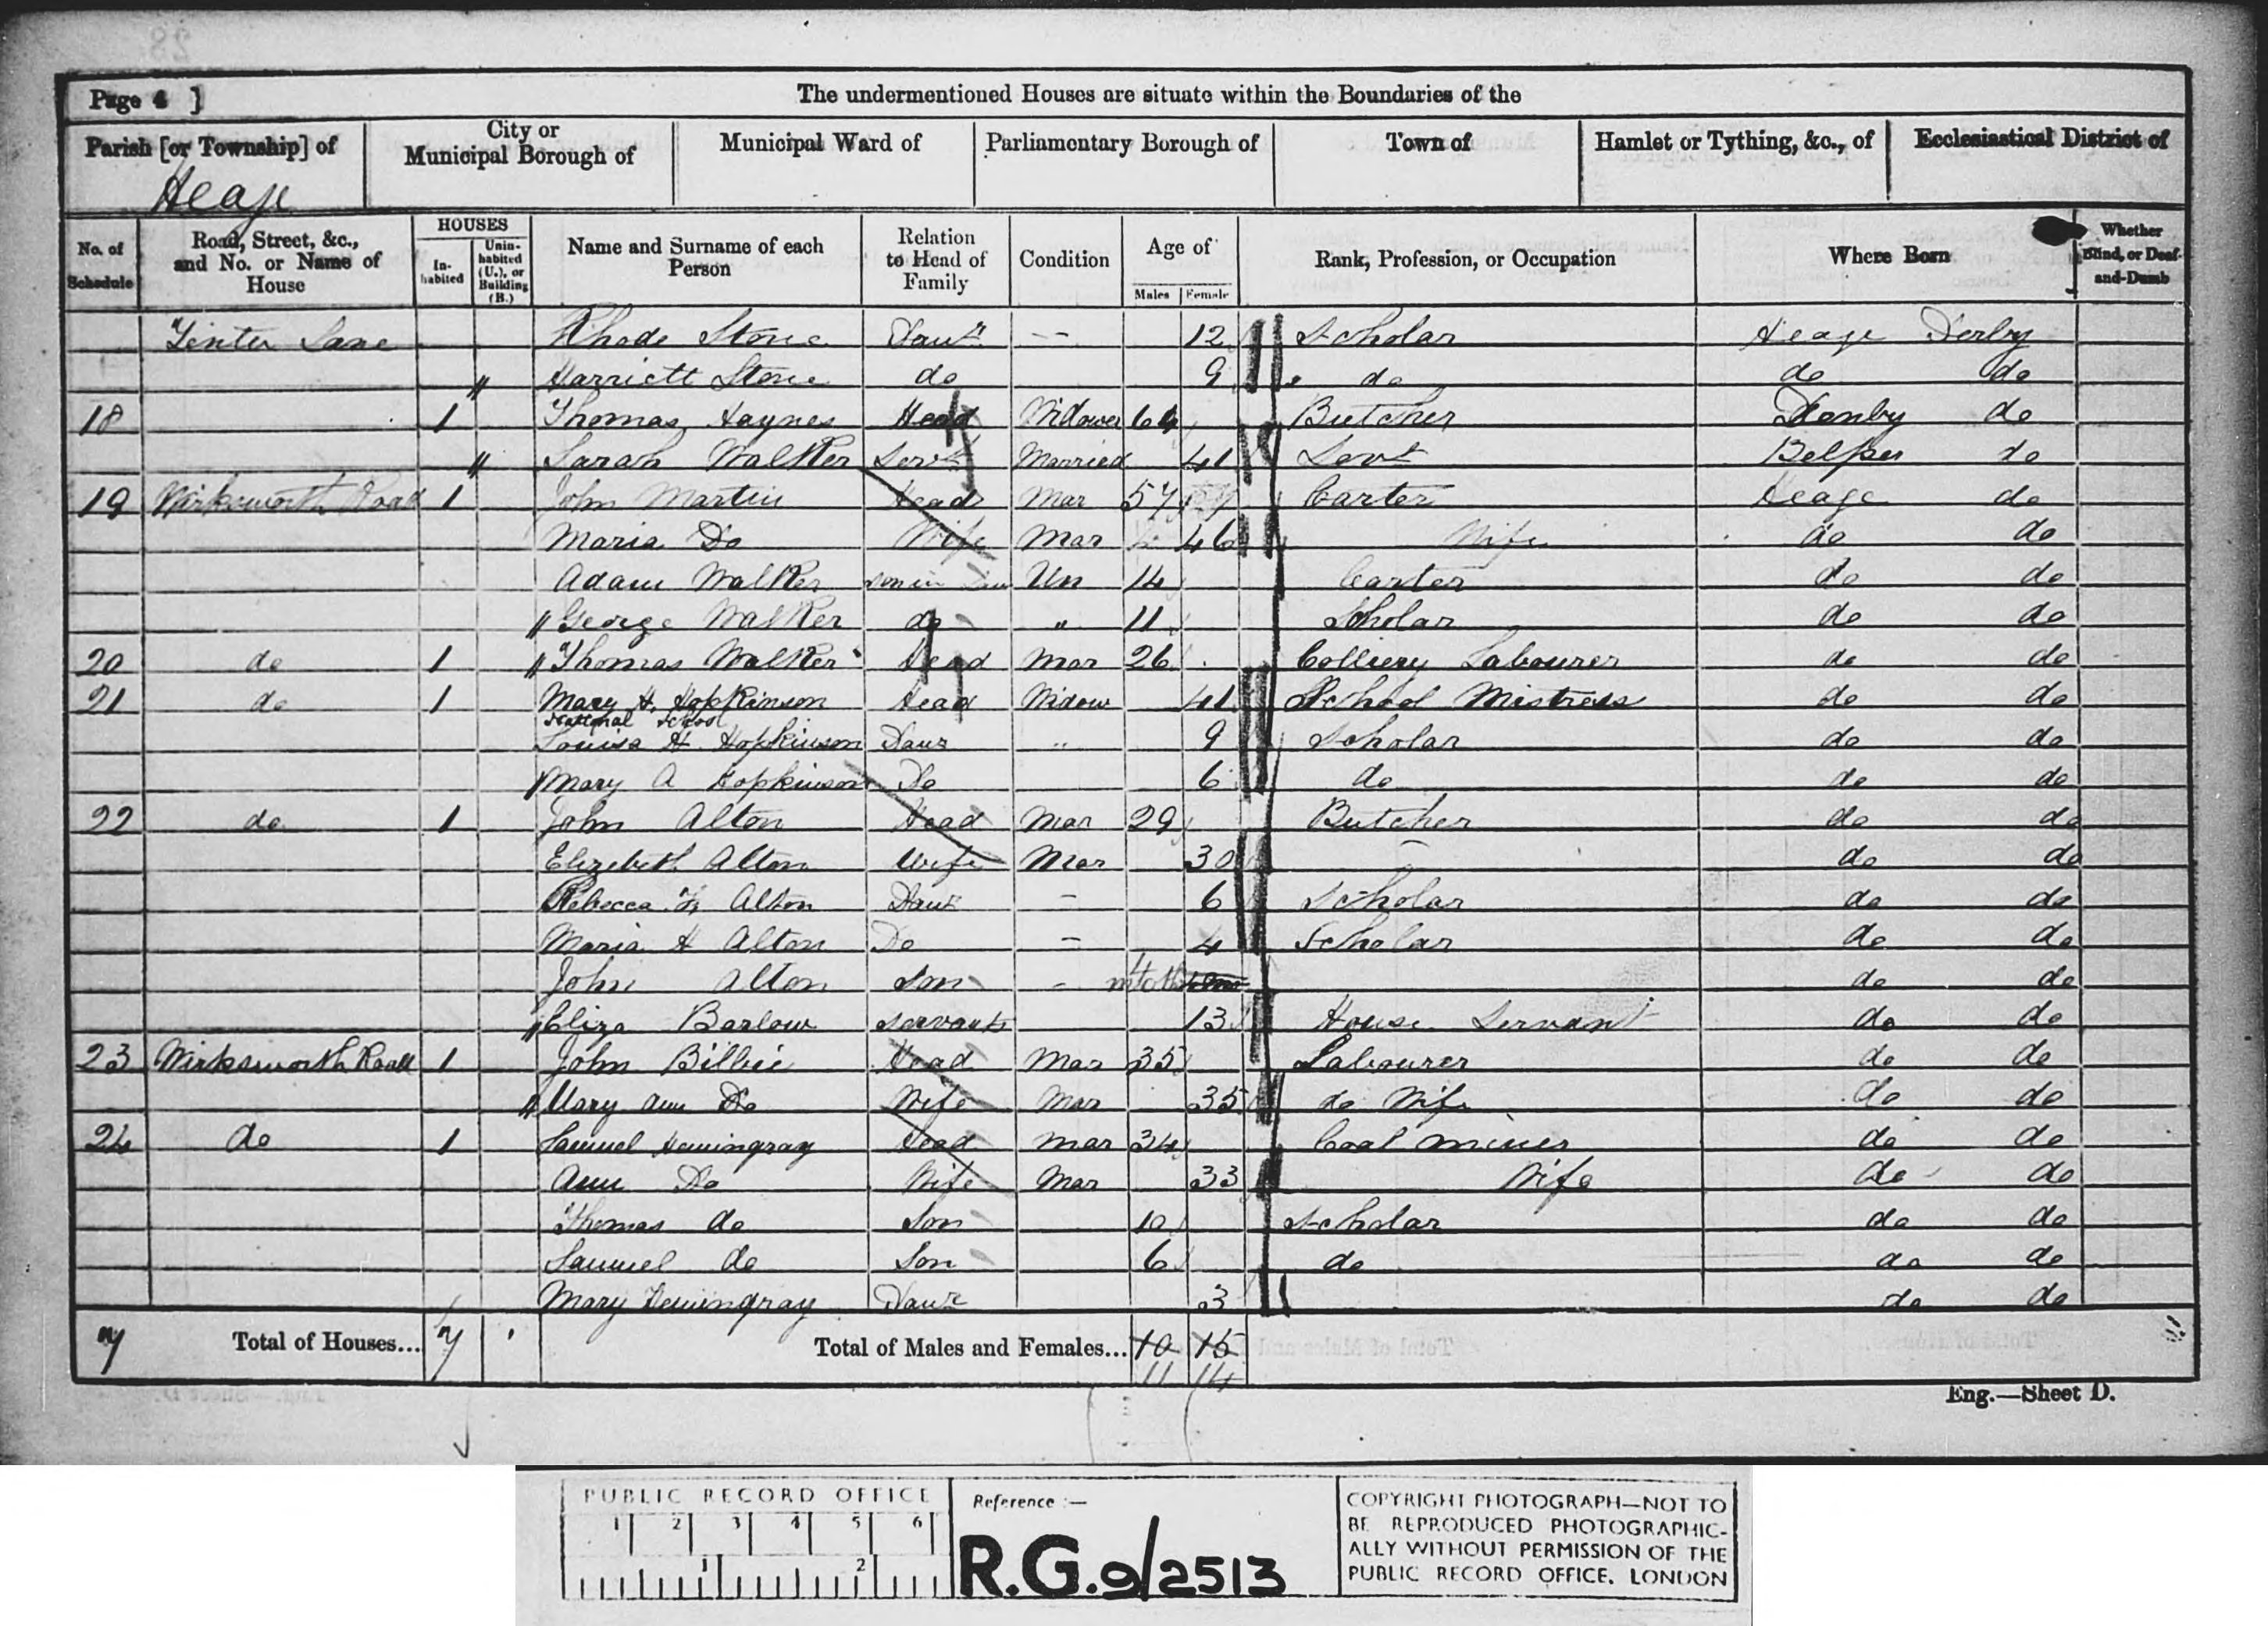 Page 4 ]
The undermentioned Houses are situate within the Boundaries of the
Parish [or Township] of
City or Municipal Borough of
Municipal Ward of
Parliamentary Borough of
Town of
Hamlet or Tything, &c., of
Ecclesiastical District of
Heage
No. of Schedule
Road, Street, &c., and No. or Name of House
HOUSES
In-habited
Unin-habited (U.), or Building (B.)
Name and Surname of each Person
Relation to Head of Family
Condition
Age of
Males
Female
Rank, Profession, or Occupation
Where Born
Whether Blind, or Deaf-and-Dumb
Tenter Lane Rhode Stone Daur — 12 Scholar Heage Derby
" Harriett Stone do 9 do do do
18 1 Thomas Haynes Head Widower 64 Butcher Denby do
" Sarah Walker Servt Married 41 Servt Belper do
19 Wirksworth Road 1 John Martin Head Mar 57 Carter Heage do
Maria Do Wife Mar 46 Wife do do
Adam Walker son in Law Un 14 Carter do do
" George Walker do " 11 Scholar do do
20 do 1 " Thomas Walker Head Mar 26 Colliery Labourer do do
21 do 1 Mary H. Hopkinson Head Widow 41 School Mistress do do
National School
Louisa H. Hopkinson Daur " 9 Scholar do do
" Mary A Hopkinson Do 6 do do do
22 do 1 John Alton Head Mar 29 Butcher do do
Elizabeth Alton Wife Mar 30 — do do
Rebecca Alton Daur — 6 Scholar do do
Maria H Alton Do — 4 Scholar do do
John Alton Son - 4 do do
" Eliza Barlow servant 13 House Servant do do
23 Wirksworth Road 1 John Billie Head Mar 35 Labourer do do
" Mary Ann Do Wife Mar 35 do Wife do do
24 do 1 Samuel Hemingray Head Mar 34 Coal miner do do
Ann Do Wife Mar 33 Wife do do
Thomas do Son 10 Scholar do do
Samuel do Son 6 do do do
Mary Hemingray Daur 3 do do
7 Total of Houses... 7 Total of Males and Females... 10 15
11 14
Eng.—Sheet D.
PUBLIC RECORD OFFICE
1 2 3 4 5 6
1 2
Reference :—
R.G. 9/2513
COPYRIGHT PHOTOGRAPH—NOT TO
BE REPRODUCED PHOTOGRAPHIC-
ALLY WITHOUT PERMISSION OF THE
PUBLIC RECORD OFFICE. LONDON